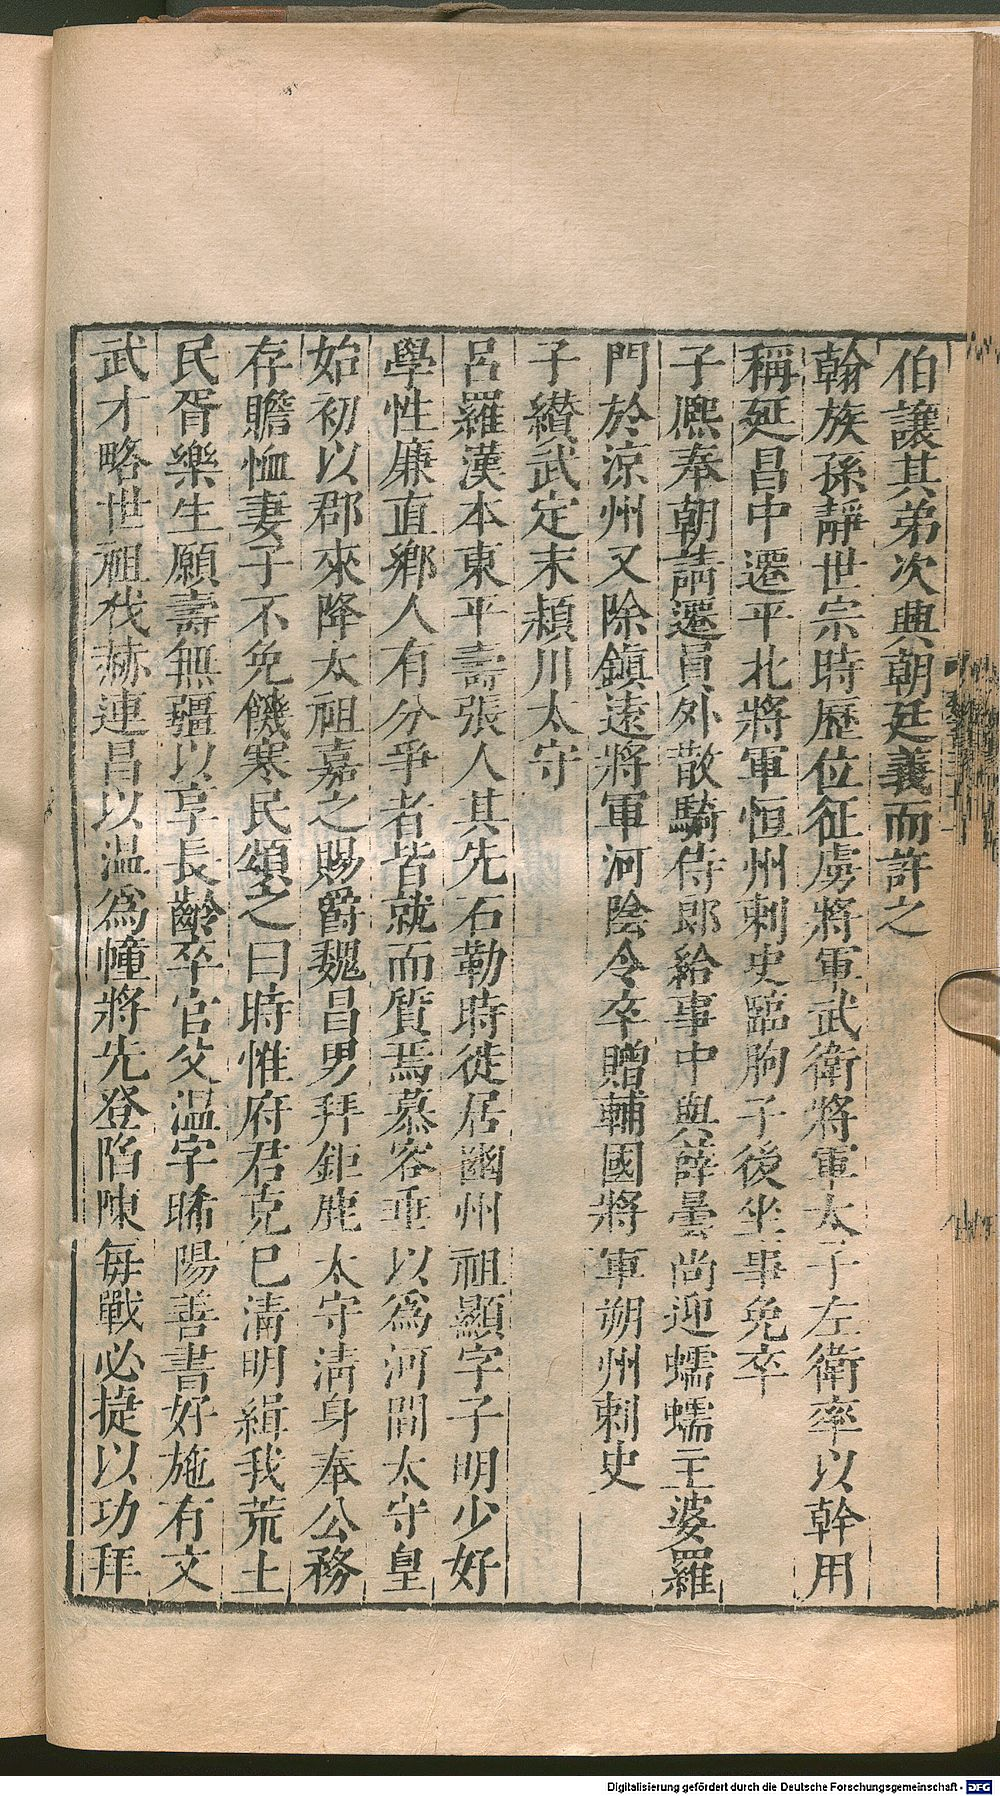 伯讓其弟次興朝廷義而許之
翰族孫靜世宗時歷位征虜將軍武衛將軍太子左衛率以幹用
稱延昌中遷平北將軍恒州刺史臨朐子後坐事免卒
子熈奉朝請遷員外散騎侍郎給事中與薛曇尚迎蠕蠕主婆羅
門於涼州又除鎮遠將軍河陰令卒贈輔國將軍朔州刺史
子纉武定末潁川太守
呂羅漢本東平壽張人其先石勒時徙居幽州祖顯字子明少好
學性廉直鄉人有分爭者皆就而質焉慕容垂以為河間太守皇
始初以郡來降太祖嘉之賜爵魏昌男拜鉅鹿太守清身奉公務
存贍恤妻子不免饑寒民頌之曰時惟府君克已清明緝我荒土
民胥樂生願壽無疆以享長齡卒官父温字晞陽善書好施有文
武才略世祖伐赫連昌以温為幢將先登陷陳每戰必捷以功拜
Digitalisierung gefördert durch die Deutsche Forschungsgemeinschaft - DFG